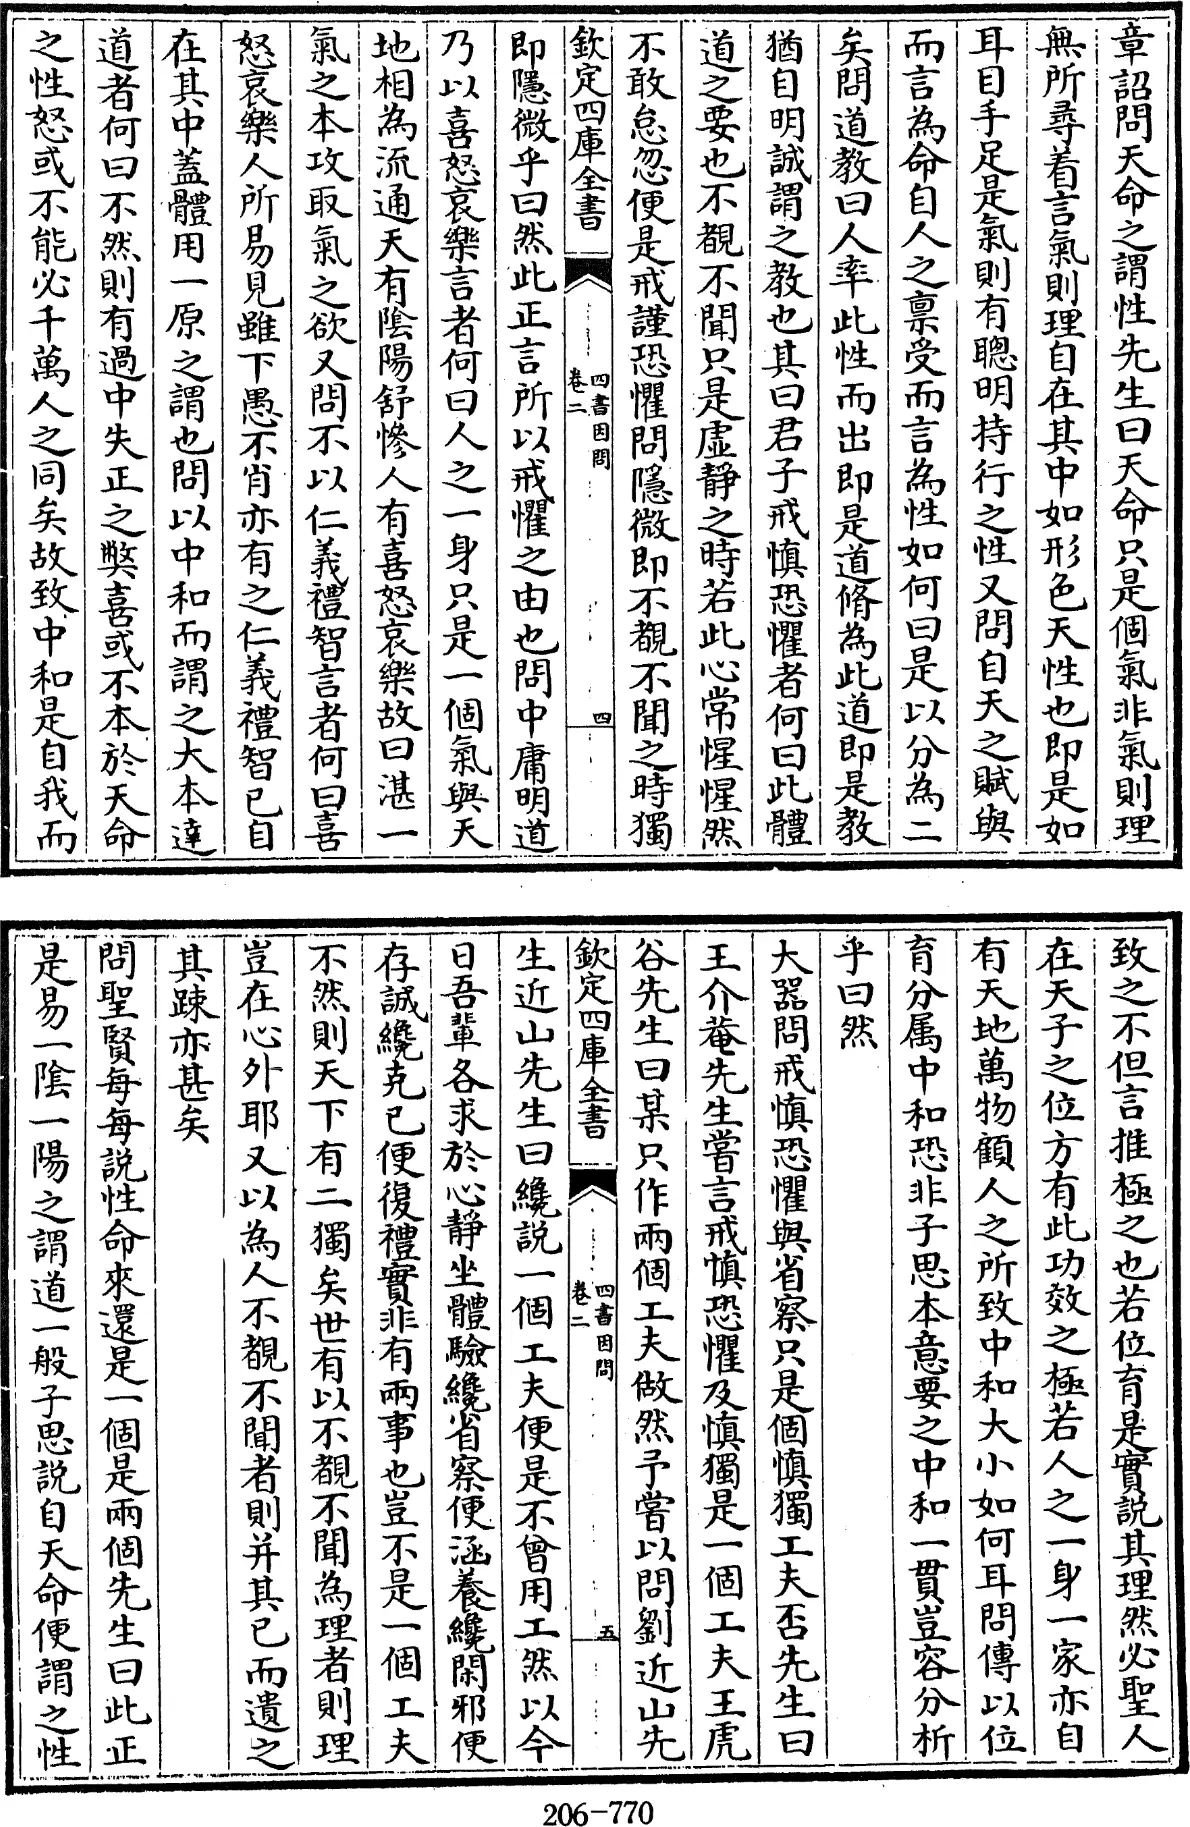 章詔問天命之謂性先生曰天命只是個氣非氣則理
無所尋着言氣則理自在其中如形色天性也即是如
耳目手足是氣則有聰明持行之性又問自天之賦與
而言為命自人之禀受而言為性如何曰是以分為二
矣問道教曰人率此性而出即是道脩為此道即是教
猶自明誠謂之教也其曰君子戒慎恐懼者何曰此體
道之要也不覩不聞只是虛靜之時若此心常惺惺然
不敢怠忽便是戒謹恐懼問隱微即不覩不聞之時獨
欽定四庫全書
四書因問
卷二
四
即隱微乎曰然此正言所以戒懼之由也問中庸明道
乃以喜怒哀樂言者何曰人之一身只是一個氣與天
地相為流通天有陰陽舒慘人有喜怒哀樂故曰湛一
氣之本攻取氣之欲又問不以仁義禮智言者何曰喜
怒哀樂人所易見雖下愚不肖亦有之仁義禮智已自
在其中蓋體用一原之謂也問以中和而謂之大本達
道者何曰不然則有過中失正之弊喜或不本於天命
之性怒或不能必千萬人之同矣故致中和是自我而
致之不但言推極之也若位育是實說其理然必聖人
在天子之位方有此功效之極若人之一身一家亦自
有天地萬物顧人之所致中和大小如何耳問傳以位
育分属中和恐非子思本意要之中和一貫豈容分析
乎曰然
大器問戒慎恐懼與省察只是個慎獨工夫否先生曰
王介菴先生嘗言戒慎恐懼及慎獨是一個工夫王虎
谷先生曰某只作兩個工夫做然予嘗以問劉近山先
欽定四庫全書
四書因問
卷二
五
生近山先生曰纔說一個工夫便是不曾用工然以今
日吾輩各求於心靜坐體驗纔省察便涵養纔閑邪便
存誠纔克已便復禮實非有兩事也豈不是一個工夫
不然則天下有二獨矣世有以不覩不聞為理者則理
豈在心外耶又以為人不覩不聞者則并其已而遺之
其踈亦甚矣
問聖賢每每説性命來還是一個是兩個先生曰此正
是易一陰一陽之謂道一般子思説自天命便謂之性
206-770